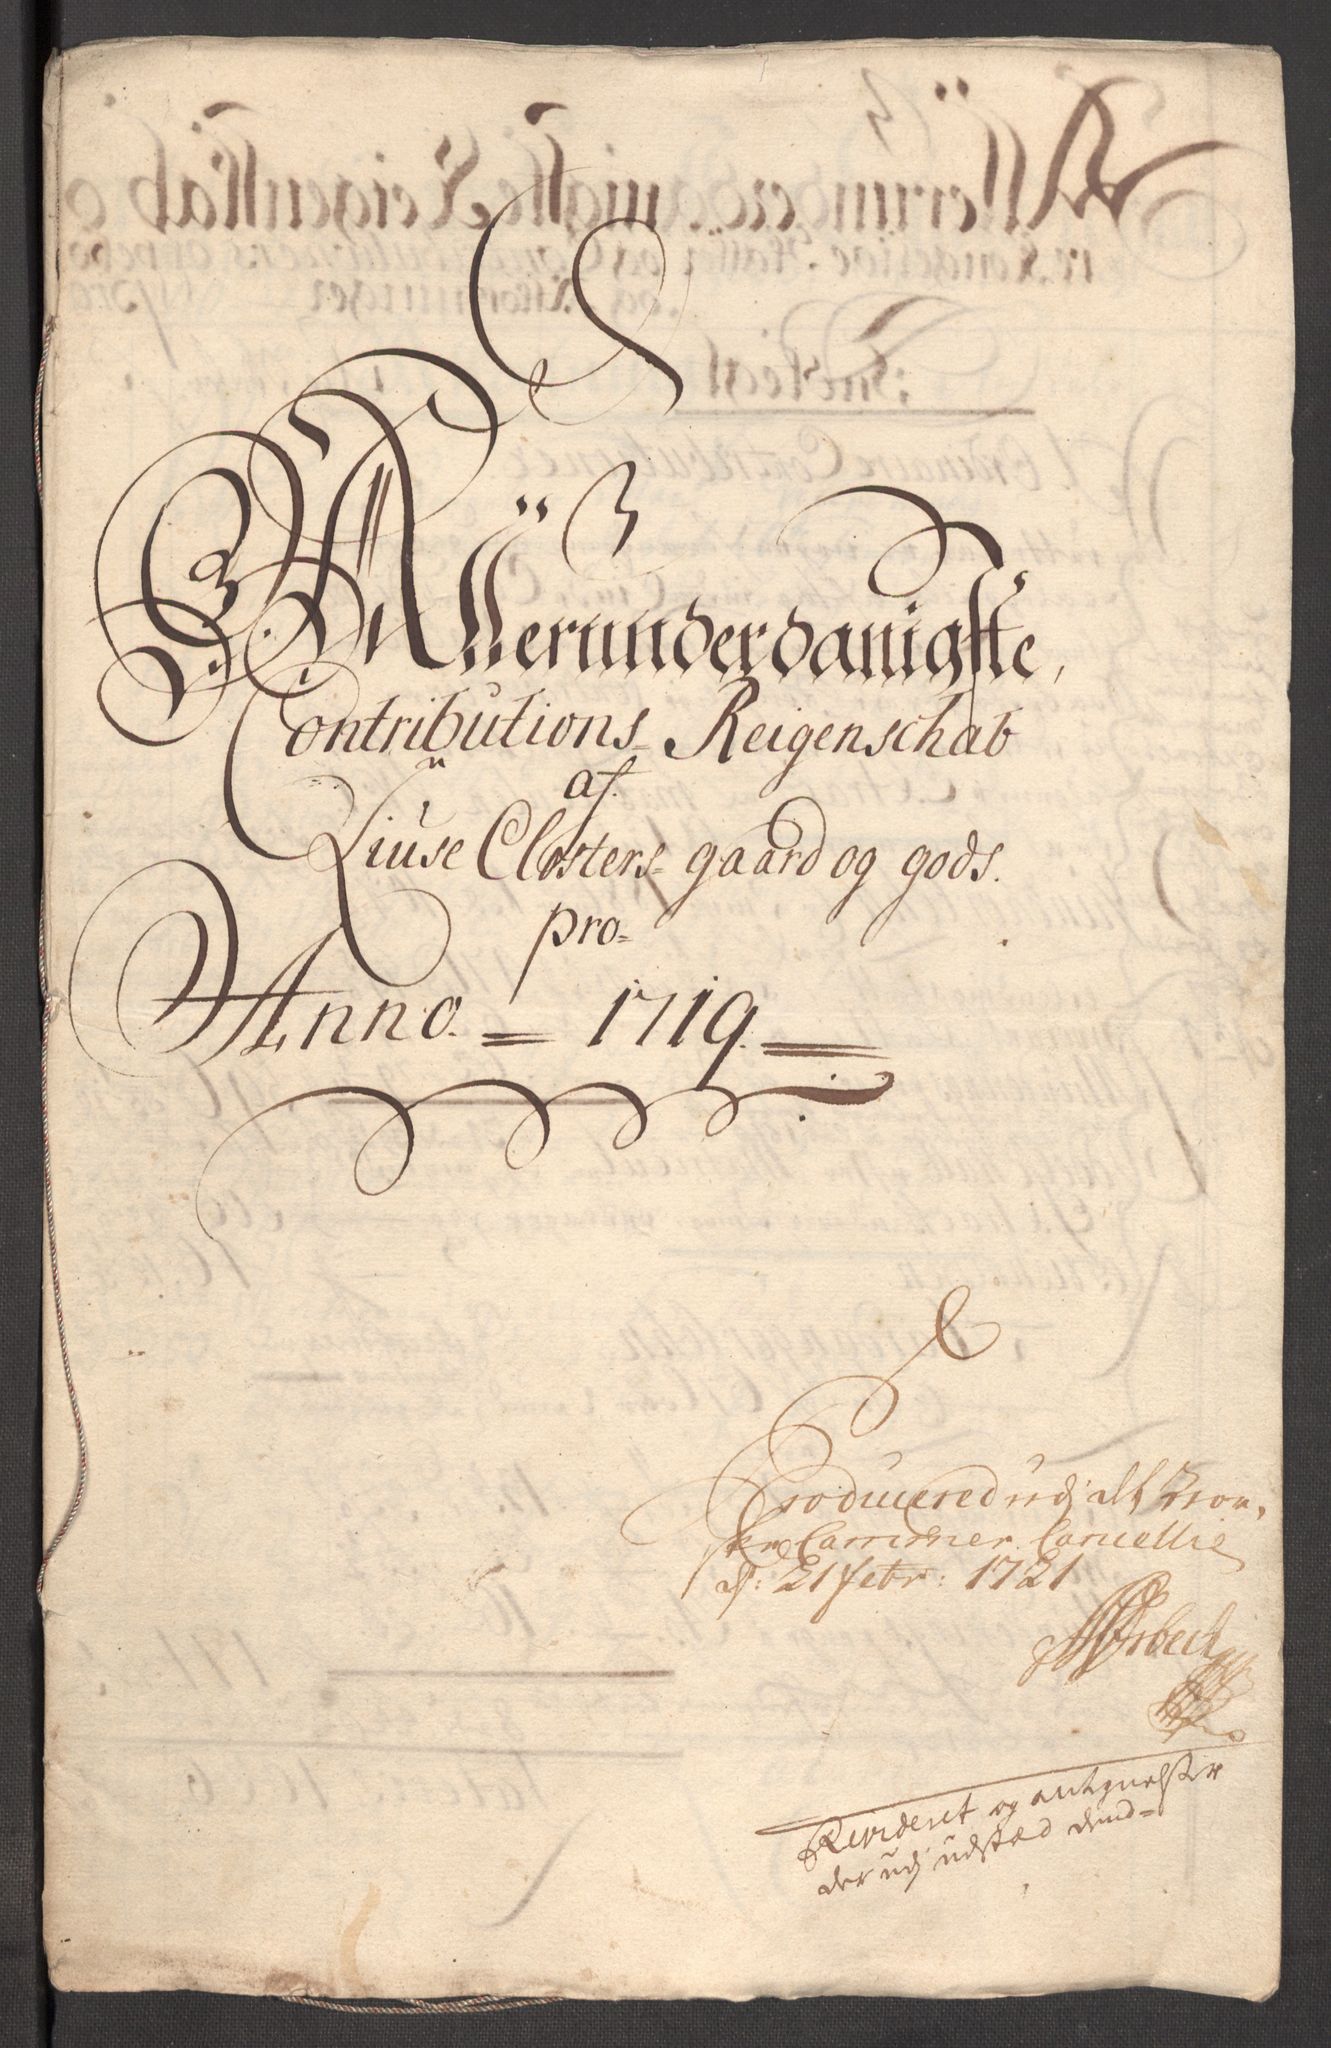 Allerunderdanigste,
Contributions- Reigenschab
af.
Liuse Closters- gaard og gods.
pro-
Anno. = 1719.
Producered udj det Nor,
ske Cammer Cancellie
d: 21 febr: 1721
Revideret og antegnelser
der udj udsted